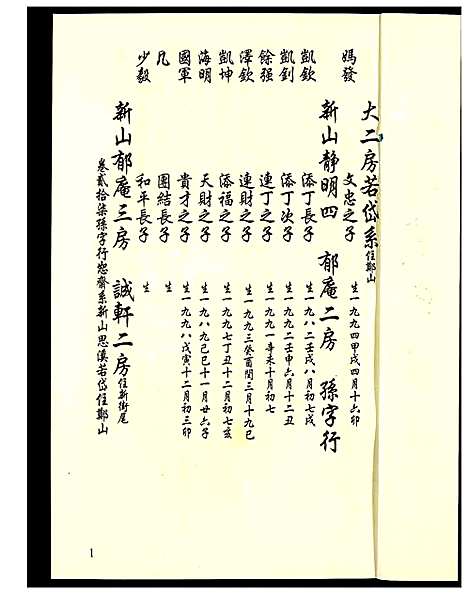 大二房若岱系住鄭山
媽發 文忠之子 生一九九四甲戌四月十六卯
新山靜明四 郁庵二房 孫字行
凱欽 添丁長子 生一九八二壬戌八月初七戌
凱釗 添丁次子 生一九九二壬申六月十二丑
餘强 連丁之子 生一九九一辛未十月初七
澤欽 連財之子 生一九九三癸酉閏三月十九巳
凱坤 添福之子 生一九九七丁丑十二月初七亥
海明 天財之子 生一九八九己巳十一月廿六子
國軍 貴才之子 生一九九八戊寅十二月初三卯
凡 團結長子 生
少毅 和平長子 生
新山郁庵三房 誠軒二房住新街尾
卷貳拾柒孫字行恕齋系新山思溪若岱住鄭山
1